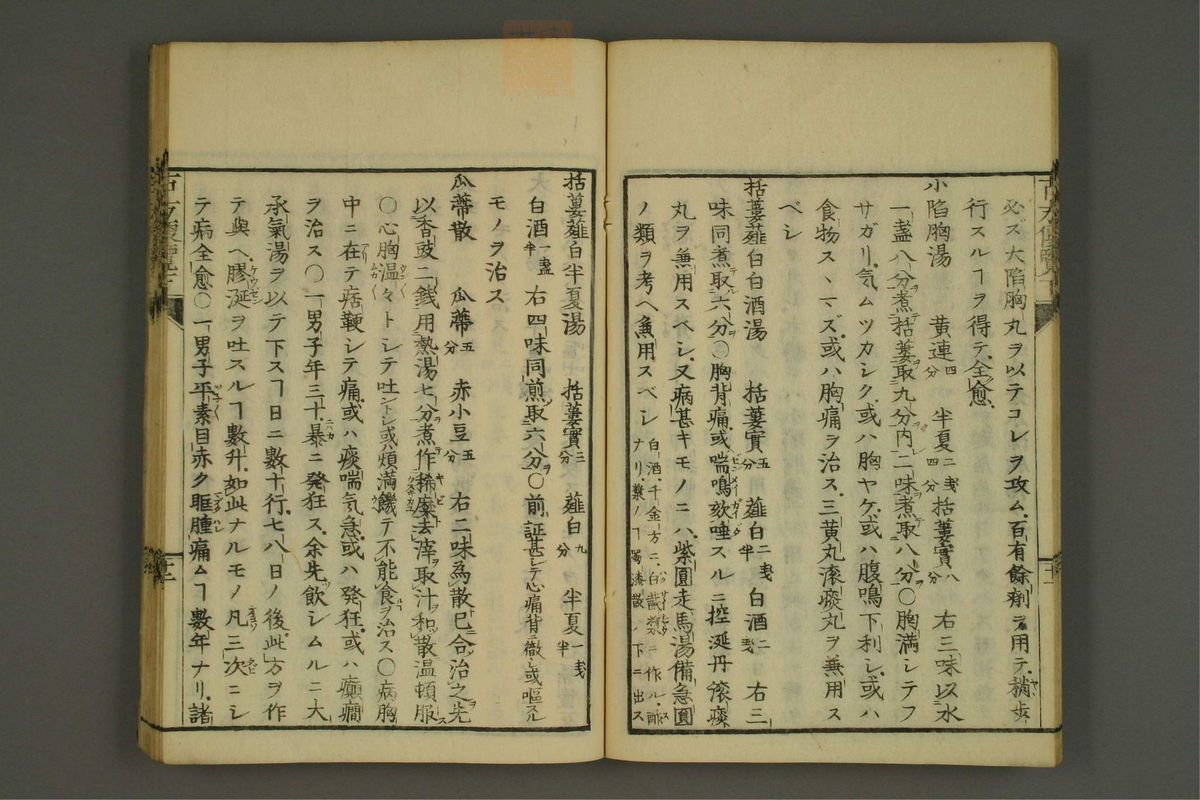 必ズ大陥胸丸ヲ以テコレヲ攻ム百有餘劑ヲ用テ稍歩
行スルヿヲ得テ全愈
小陥胸湯 黄連四分 半夏二戔四分 括蔞實八分 右三味以水
一盞八分煮括蔞取九分内二味煮取八分〇胸満シテフ
サガリ気ムツカシク或ハ胸ヤケ或ハ腹鳴下利シ或ハ
食物スヽマズ或ハ胸痛ヲ治ス三黄丸滚痰丸ヲ兼用ス
ベシ
括蔞薤白白酒湯 括蔞實五分 薤白二戔半 白酒二戔 右三
味同煮取六分〇胸背痛或喘鳴欬唾スルニ控涎丹滚痰
丸ヲ兼用スベシ又病甚キモノニハ紫圓走馬湯備急圓
ノ類ヲ考ヘ兼用スベシ 白酒千金方ニ白截漿ニ作ル酢ナリ漿ノヿ蜀漆散ノ下ニ出ス
括蔞薤白半夏湯 括蔞實三分 薤白九分 半夏一戔半
白酒一盞半 右四味同煎取六分〇前証甚シテ心痛背ニ徹シ或嘔スル
モノヲ治ス
瓜蔕散 瓜蔕五分 赤小豆五分 右二味為散已合治之先
以香豉二銭用熱湯七分煮作稀糜去滓取汁和散温頓服
〇心胸温々トシテ吐ントシ或ハ煩満饑テ不能食ヲ治ス〇病胸
中ニ在テ痞鞕シテ痛或ハ痰喘気急或ハ発狂或ハ癲癇
ヲ治ス〇一男子年三十暴ニ発狂ス余先飲シムルニ大
承氣湯ヲ以テ下スヿ日ニ數十行七八日ノ後此方ヲ作
テ與ヘ膠涎ヲ吐スルヿ數升如此ナルモノ凡三次ニシ
テ病全愈〇一男子平素目赤ク眶腫痛ムヿ數年ナリ諸